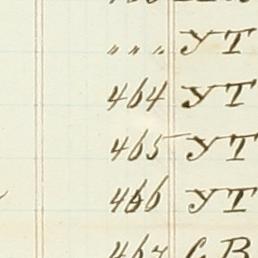 " " " YT
464 YT
465 YT
466 YT
467 CB